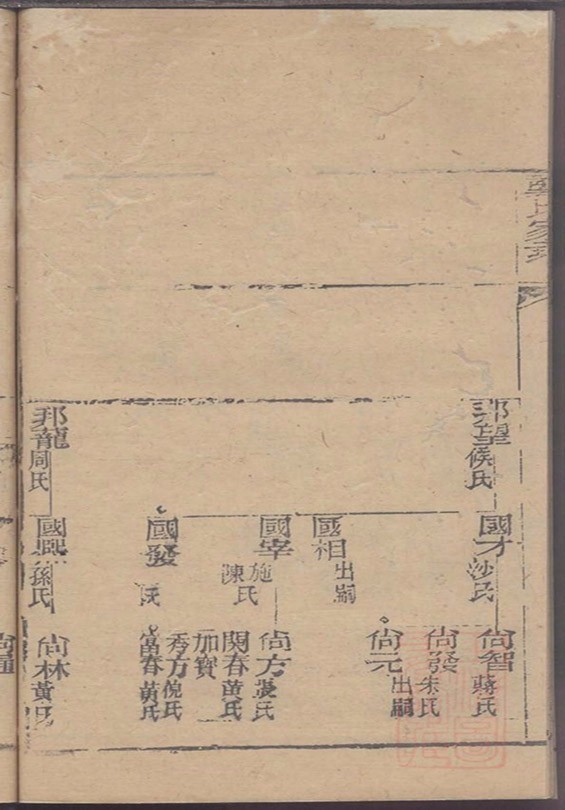 邦望 侯氏
國才 沙氏
尚智 蔣氏
尚發 朱氏
尚元 出嗣
國相 出嗣
國宰 施氏 陳氏
尚方 裴氏
閔春 黃氏
加寶
秀方 倪氏
國發 氏
富春 黃氏
邦龍 周氏
國熙 孫氏
尚林 黃氏